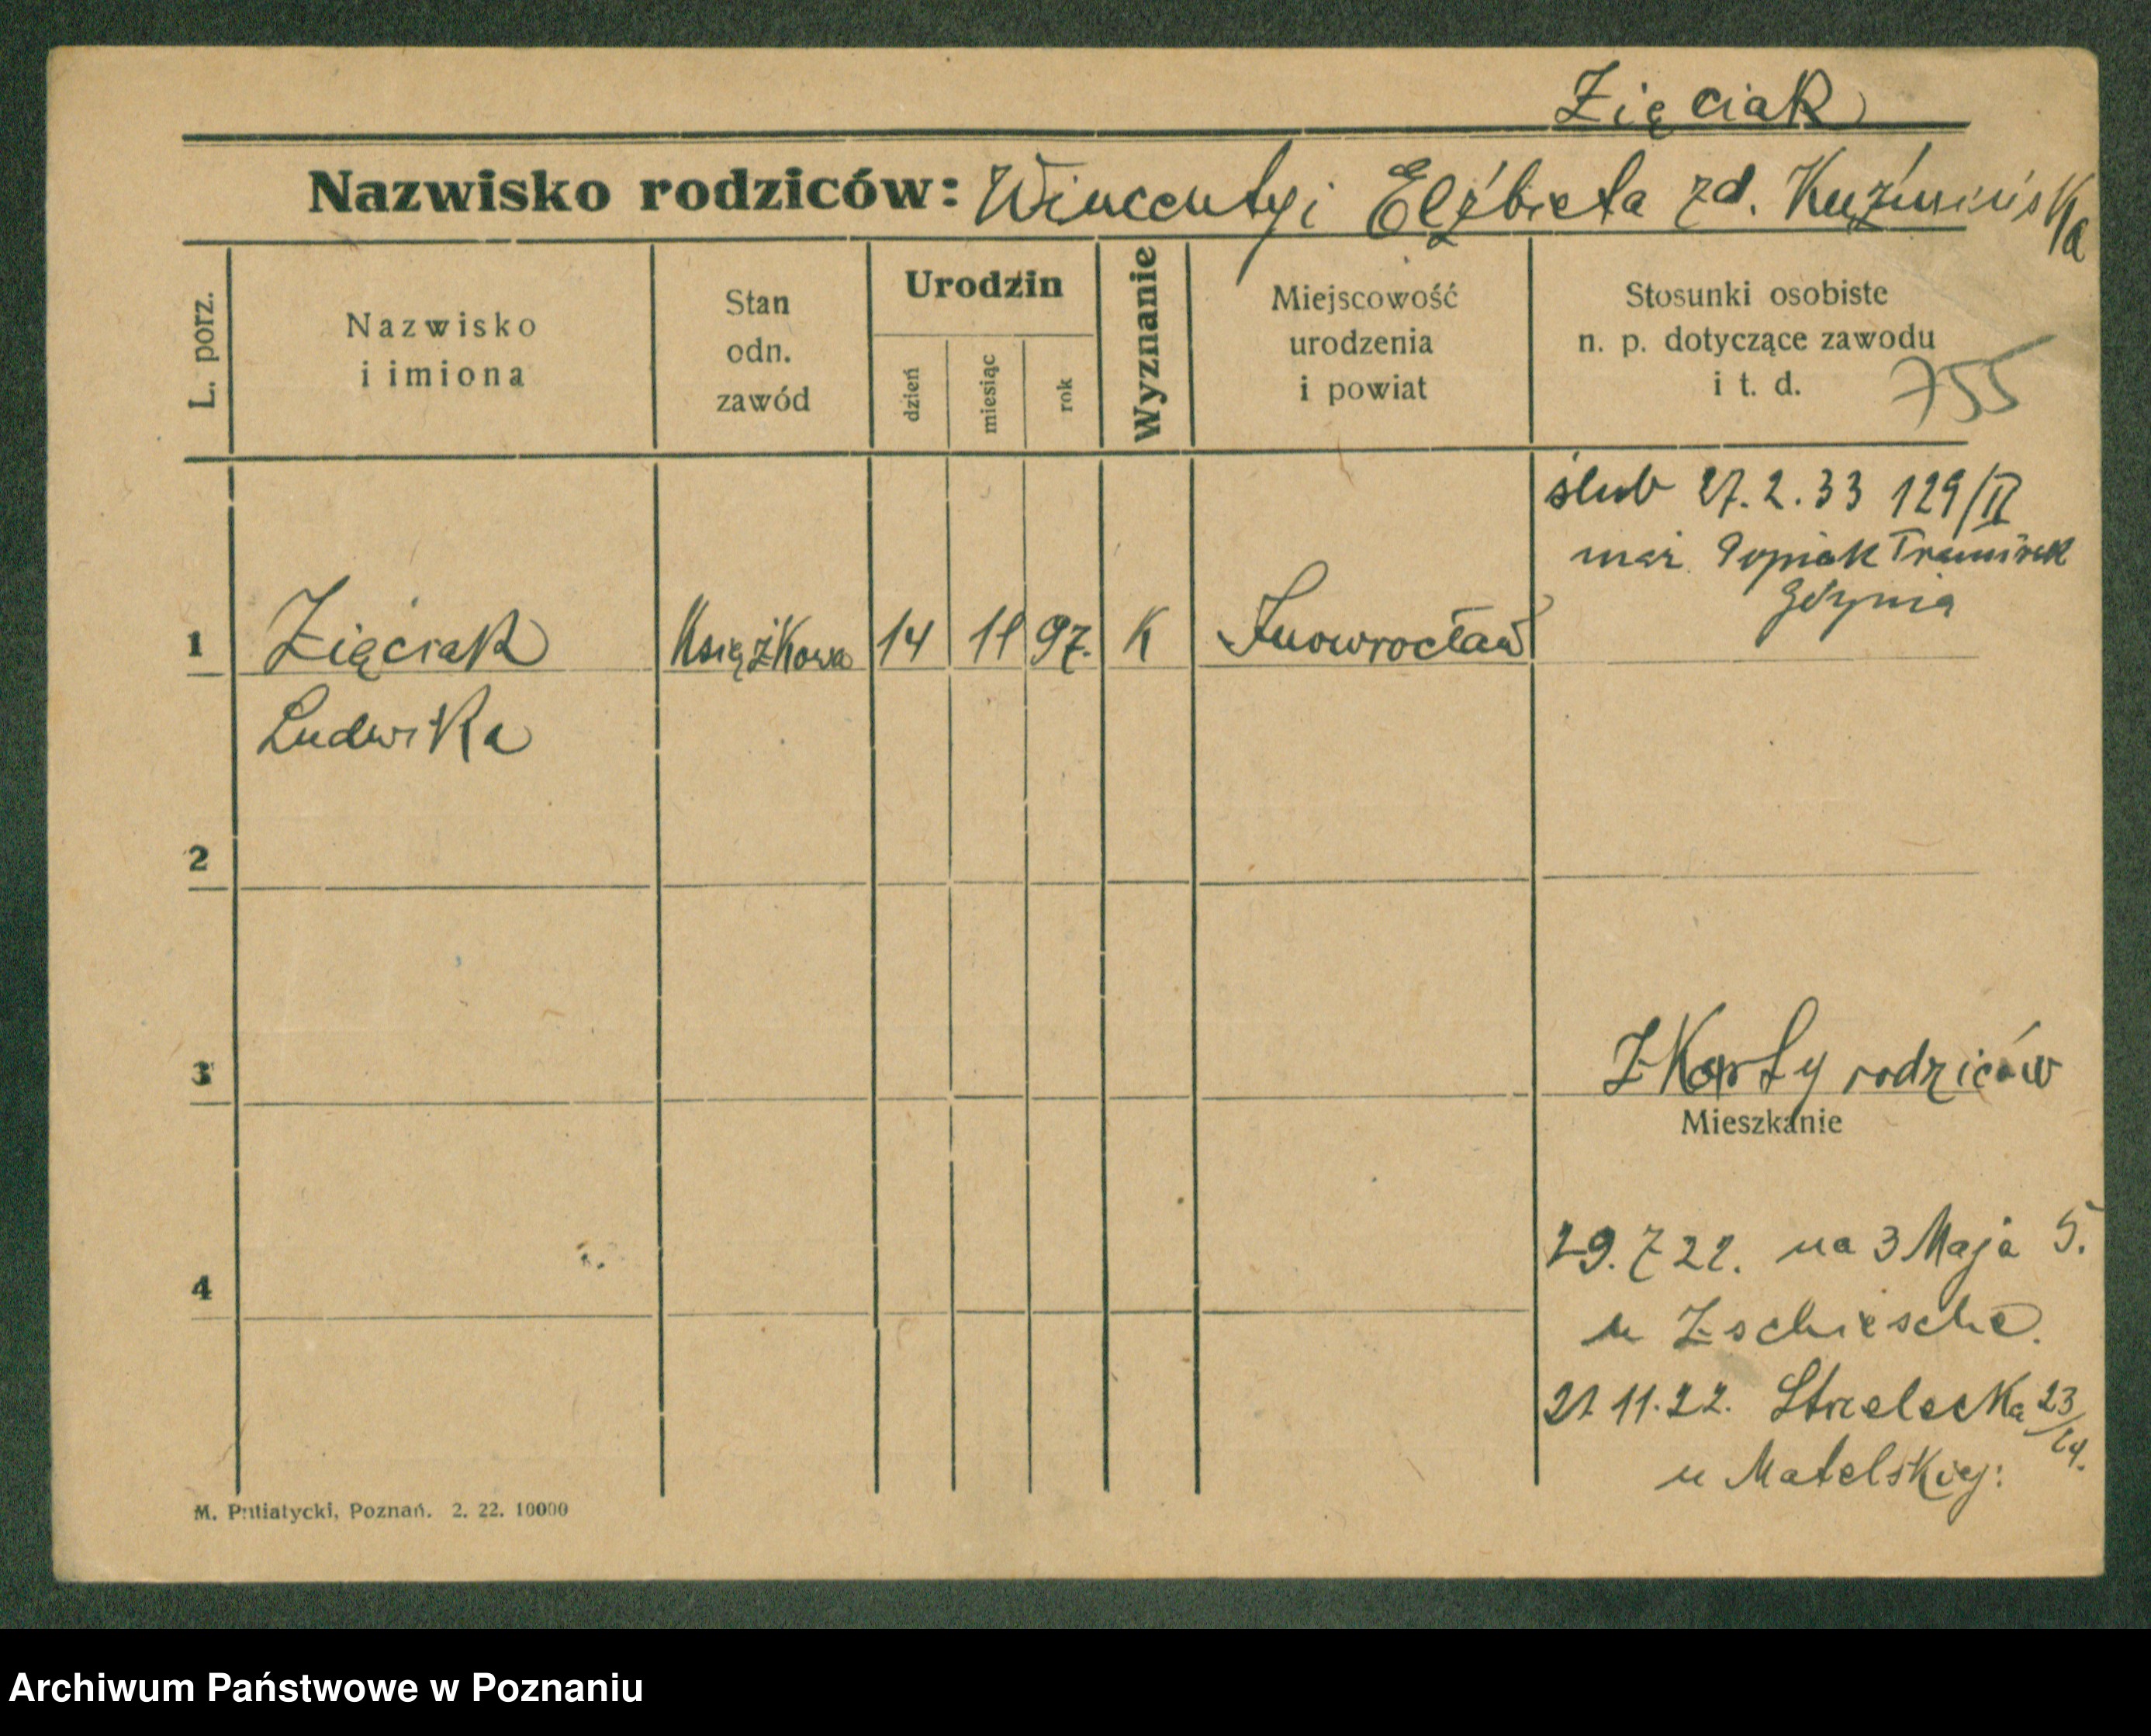 Zięciak
Nazwisko rodziców: Wincenty i Elżbieta zd. Kuźmińska
L. porz.
Nazwisko
i imiona
Stan
odn.
zawód
Urodzin
dzień
miesiąc
rok
Wyznanie
Miejscowość
urodzenia
i powiat
Stosunki osobiste
n. p. dotyczące zawodu
i t. d.
755
ślub 27.2.33 129/II
mąż
Gdynia
1 Zięciak Książkowa 14 11 97. K Inowrocław
Ludwika
2
3
Z Karty rodziców
Mieszkanie
29.7 22. na 3 Maja 5.
u Zschiesche.
4
21 11.22. Strzelecka 23/14.
u Matelskiej:
M. Putiatycki, Poznań. 2. 22. 10000
Archiwum Państwowe w Poznaniu